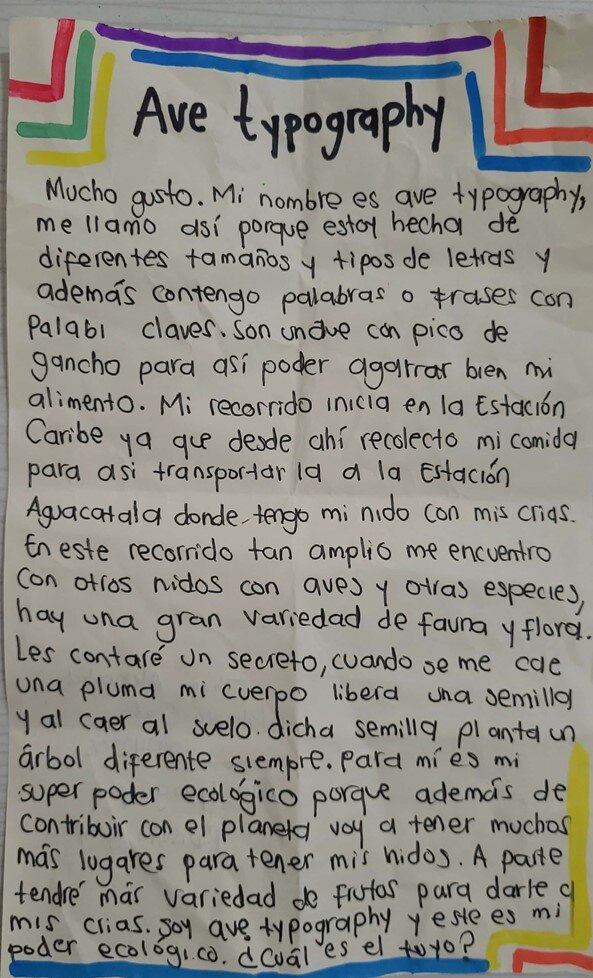 Ave typography
Mucho gusto. Mi nombre es ave typography,
me llamo así porque estoy hecha de
diferentes tamaños y tipos de letras y
además contengo palabras o frases con
Palabi claves. Son un ave con pico de
gancho para así poder agarrar bien mi
alimento. Mi recorrido inicia en la Estación
Caribe ya que desde ahí recolecto mi comida
para asi transportar la a la Estación
Aguacatala donde tengo mi nido con mis crias.
En este recorrido tan amplio me encuentro
con otros nidos con aves y otras especies,
hay una gran variedad de fauna y flora.
Les contaré un secreto, cuando se me cae
una pluma mi cuerpo libera una semilla
y al caer al suelo. dicha semilla planta un
árbol diferente siempre. Para mí es mi
super poder ecológico porque además de
contribuir con el planeta voy a tener muchos
más lugares para tener mis nidos. A parte
tendré más variedad de frutos para darle a
mis crias. soy ave typography y este es mi
poder ecológico. ¿Cuál es el tuyo?